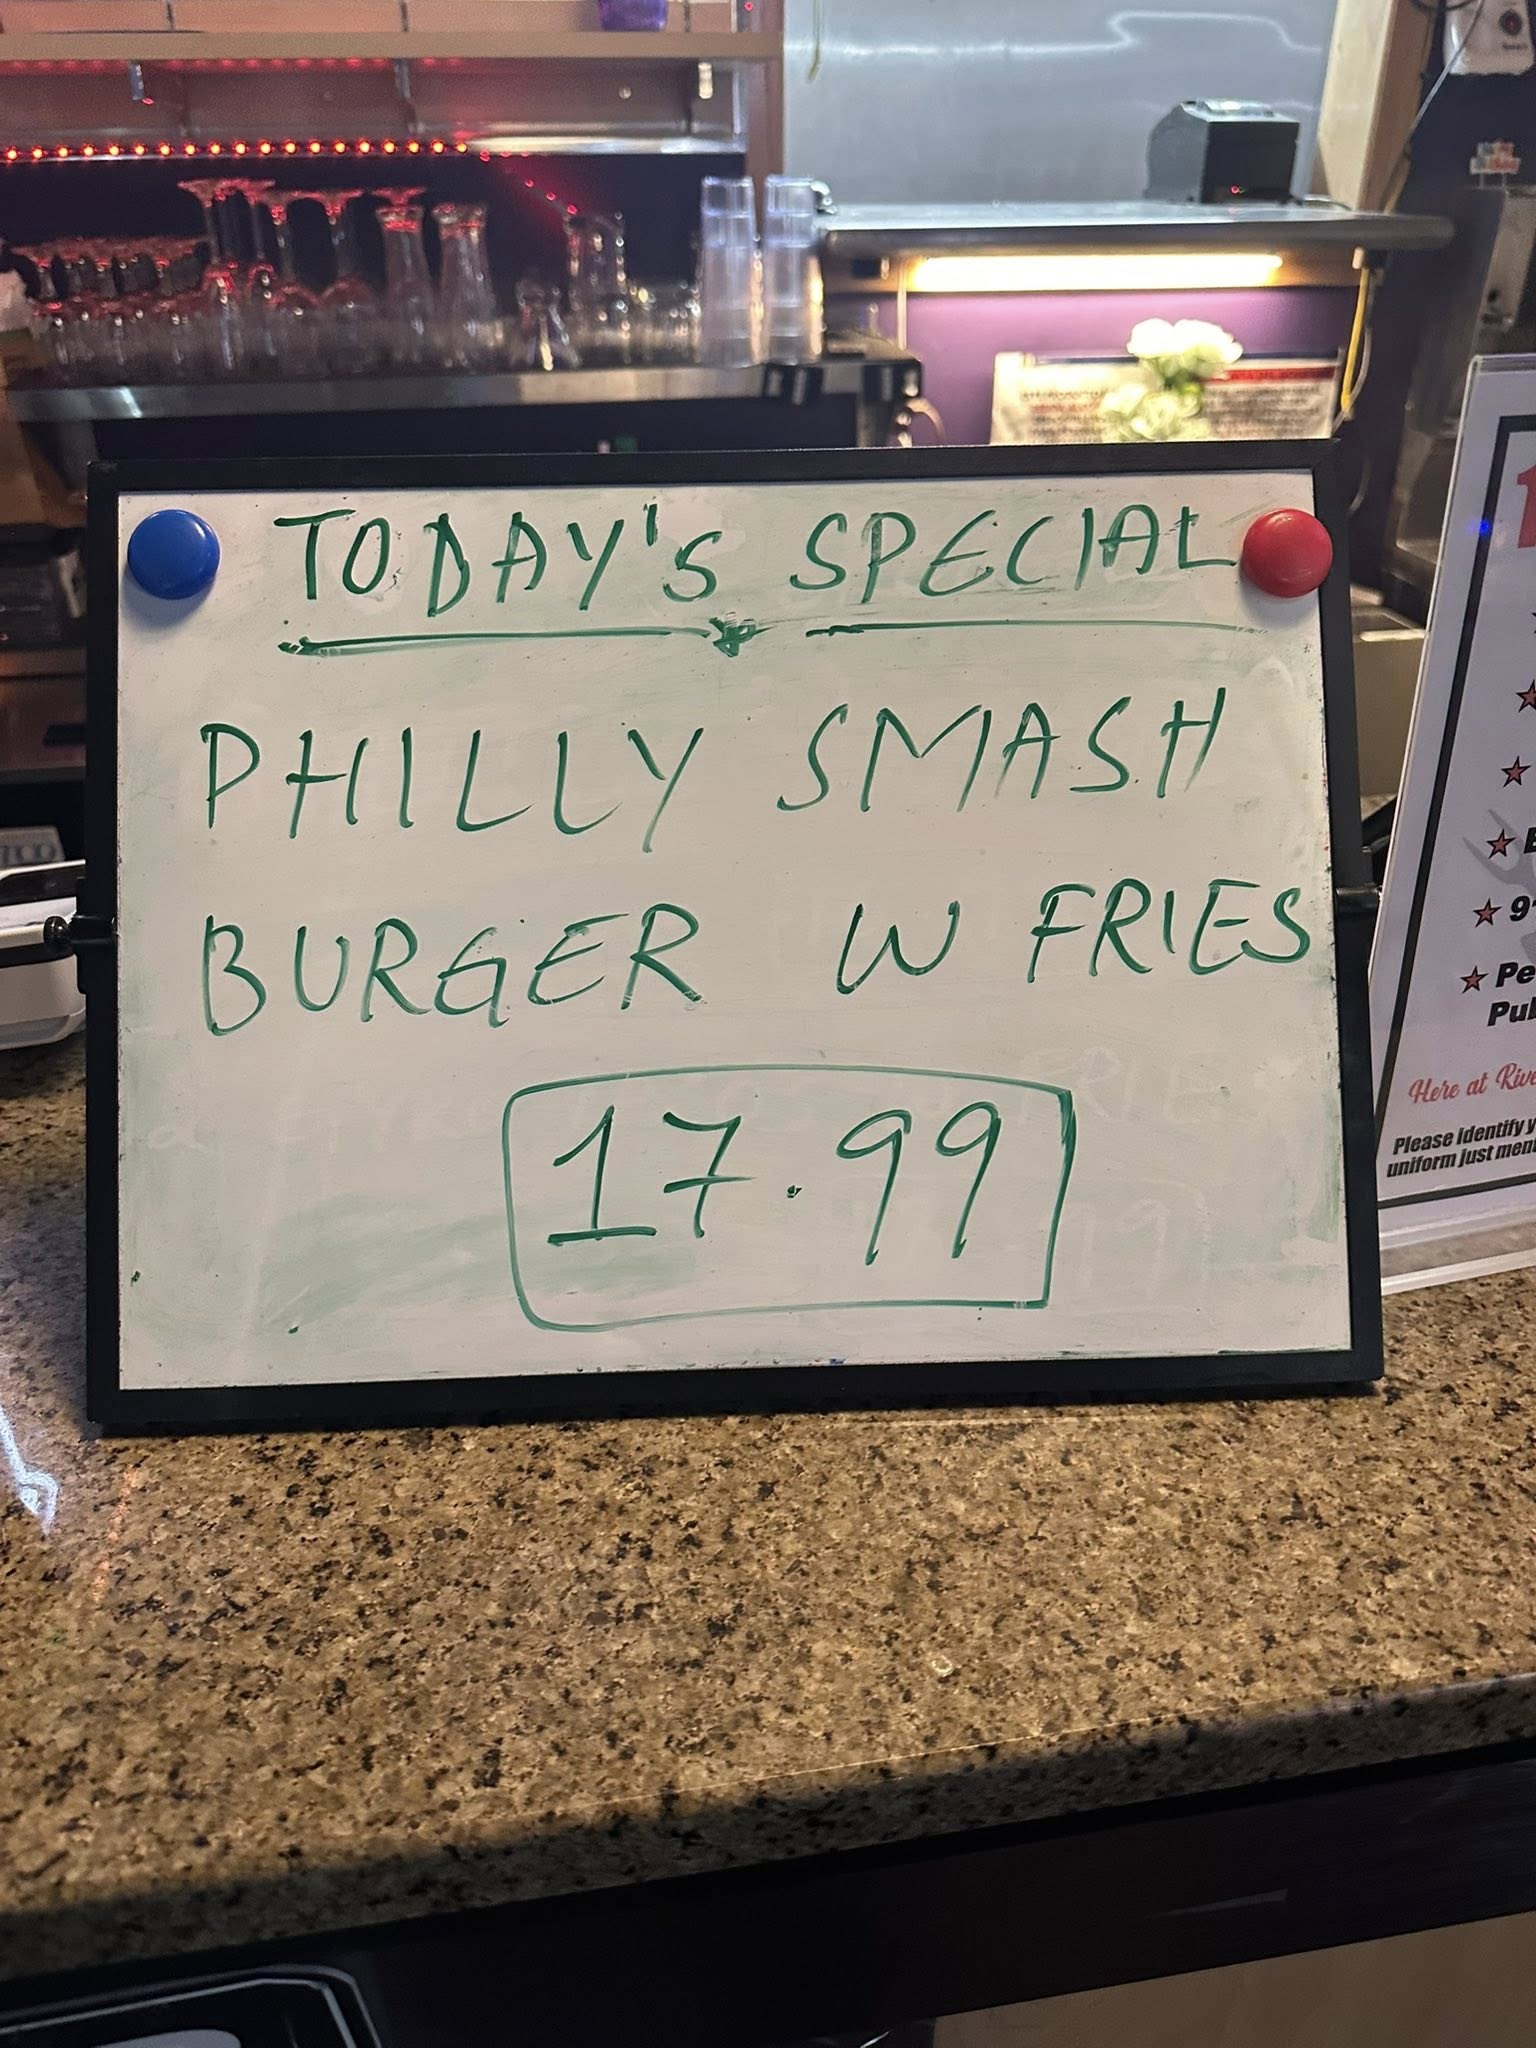 TODAY'S SPECIAL
PHILLY SMASH
BURGER W FRIES
17.99
Here at
Please identify
uniform just